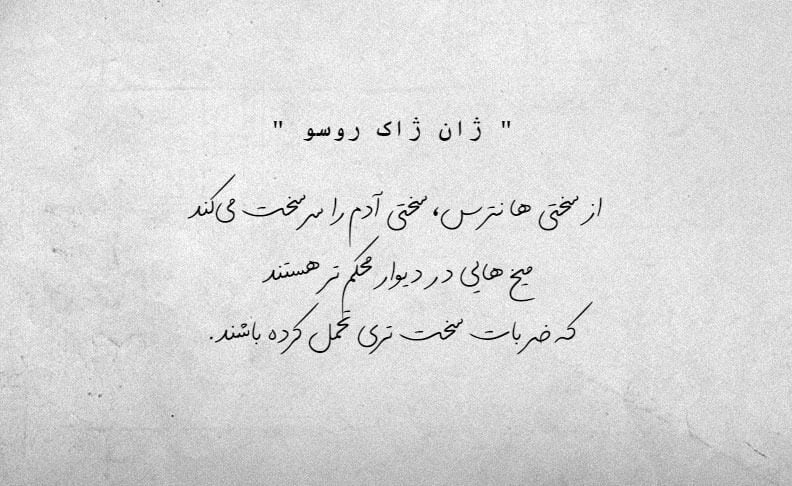 " ژان ژاک روسو "
از سختی ها نترس، سختی آدم را سرسخت می‌کند
میخ هایی در دیوار محکم تر هستند
که ضربات سخت تری تحمل کرده باشند.